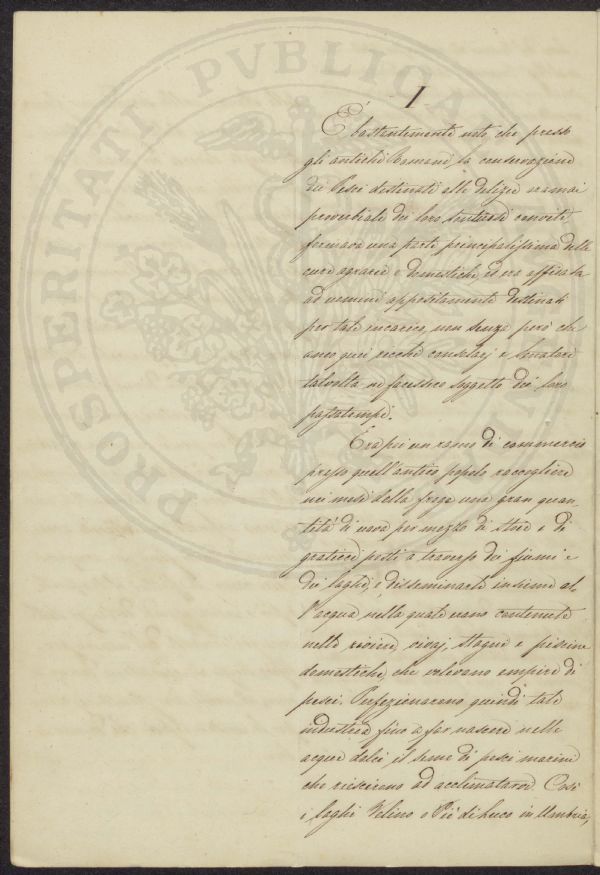 I
È bastantemente noto che presso
gli antichi Romani, la conservazione
dei Pesci destinati alle delizie oramai
proverbiale dei loro sontuosi conviti
formava una parte principalissima delle
cure agrarie e domestiche, ed era affidata
ad uomini appositamente destinati
per tale incarico, non senza però che
anco quei ricchi consolari e Senatori
talvolta ne facessero soggetto dei loro
passatempi.
Era poi un ramo di commercio
presso quell'antico popolo raccogliere
nei mesi della frega una gran quan-
tità di uova per mezzo di stoie e di
graticci posti a traverso dei fiumi e
dei laghi, e disseminarle insieme al-
l'acqua nella quale erano contenute
nelle vicine vivaj, stagni e piscine
domestiche, che volevano empire di
pesci. Perfezionarono quindi tale
industria, fino a far nascere nelle
acque dolci, il seme di pesci marini
che riescirono ad acclimatarvi. Così
i laghi Velino o Piè di Luco in Umbria,
PROSPERITATI PVBLICAE